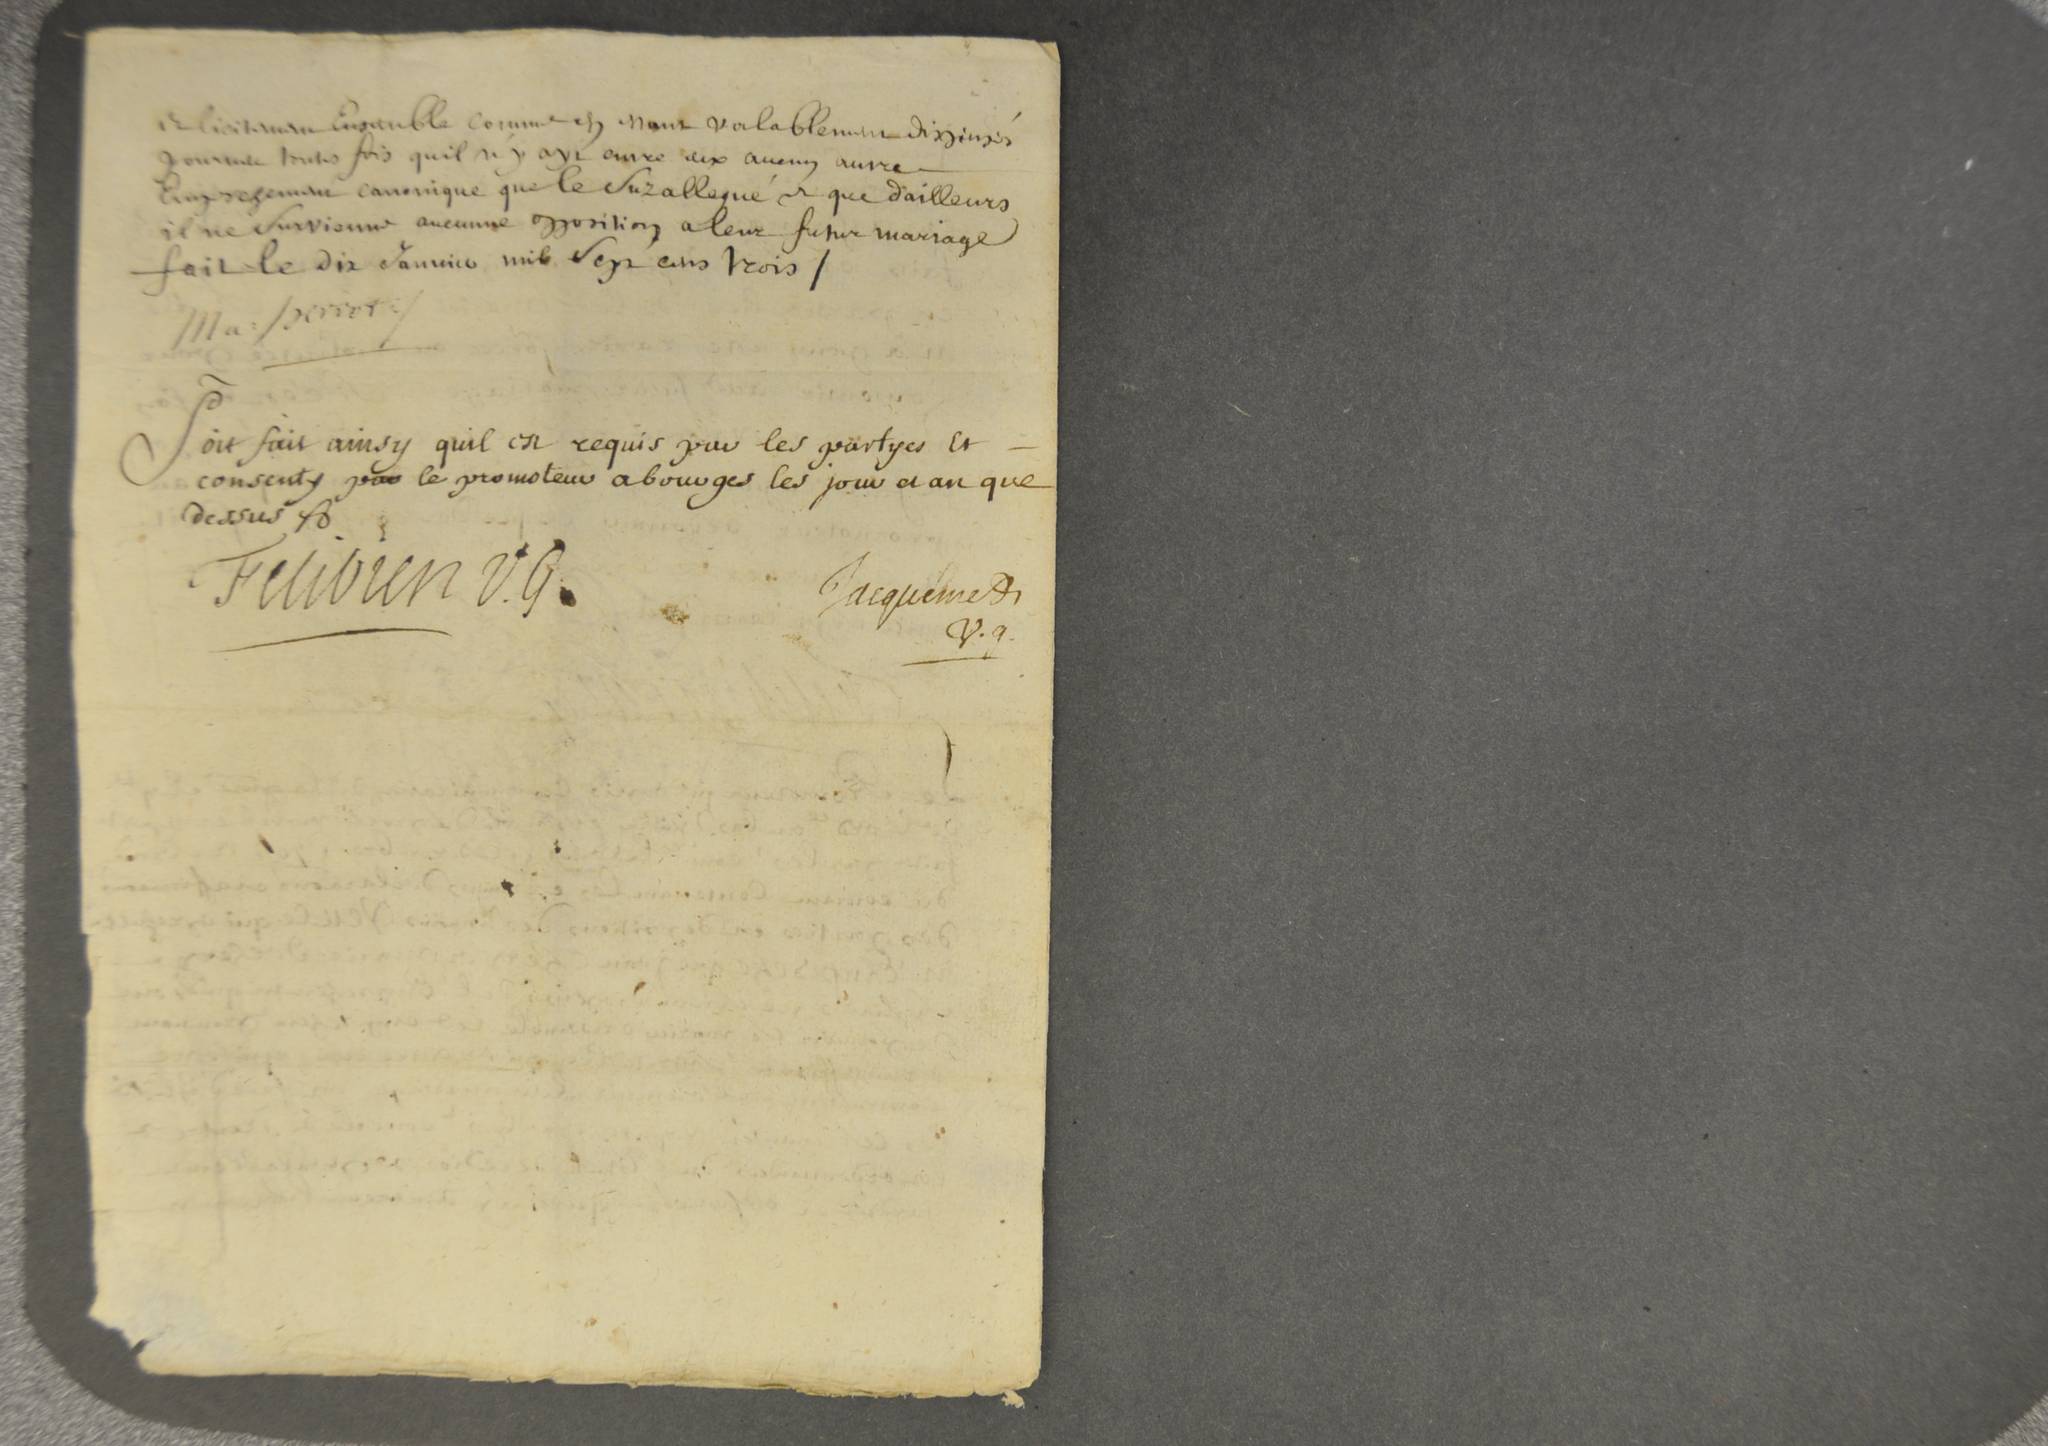 et licitemant Ensemble comme en etant valablement dispensés
pourveu toutes fois quil n'y ayt entre eux aucun autre
Empeschemant canonique que le Suzallegué et que d'ailleurs
il ne Survienne aucunne opposition a leur futur mariage
fait le dix Janvier mil Sept cens trois /
Ma: perrot
Soit fait ainsy quil est requis par les partyes Et
consenty par le promoteur a bourges les jour et an que
dessus
Felibien V.G.
Jacquemet
V.g.